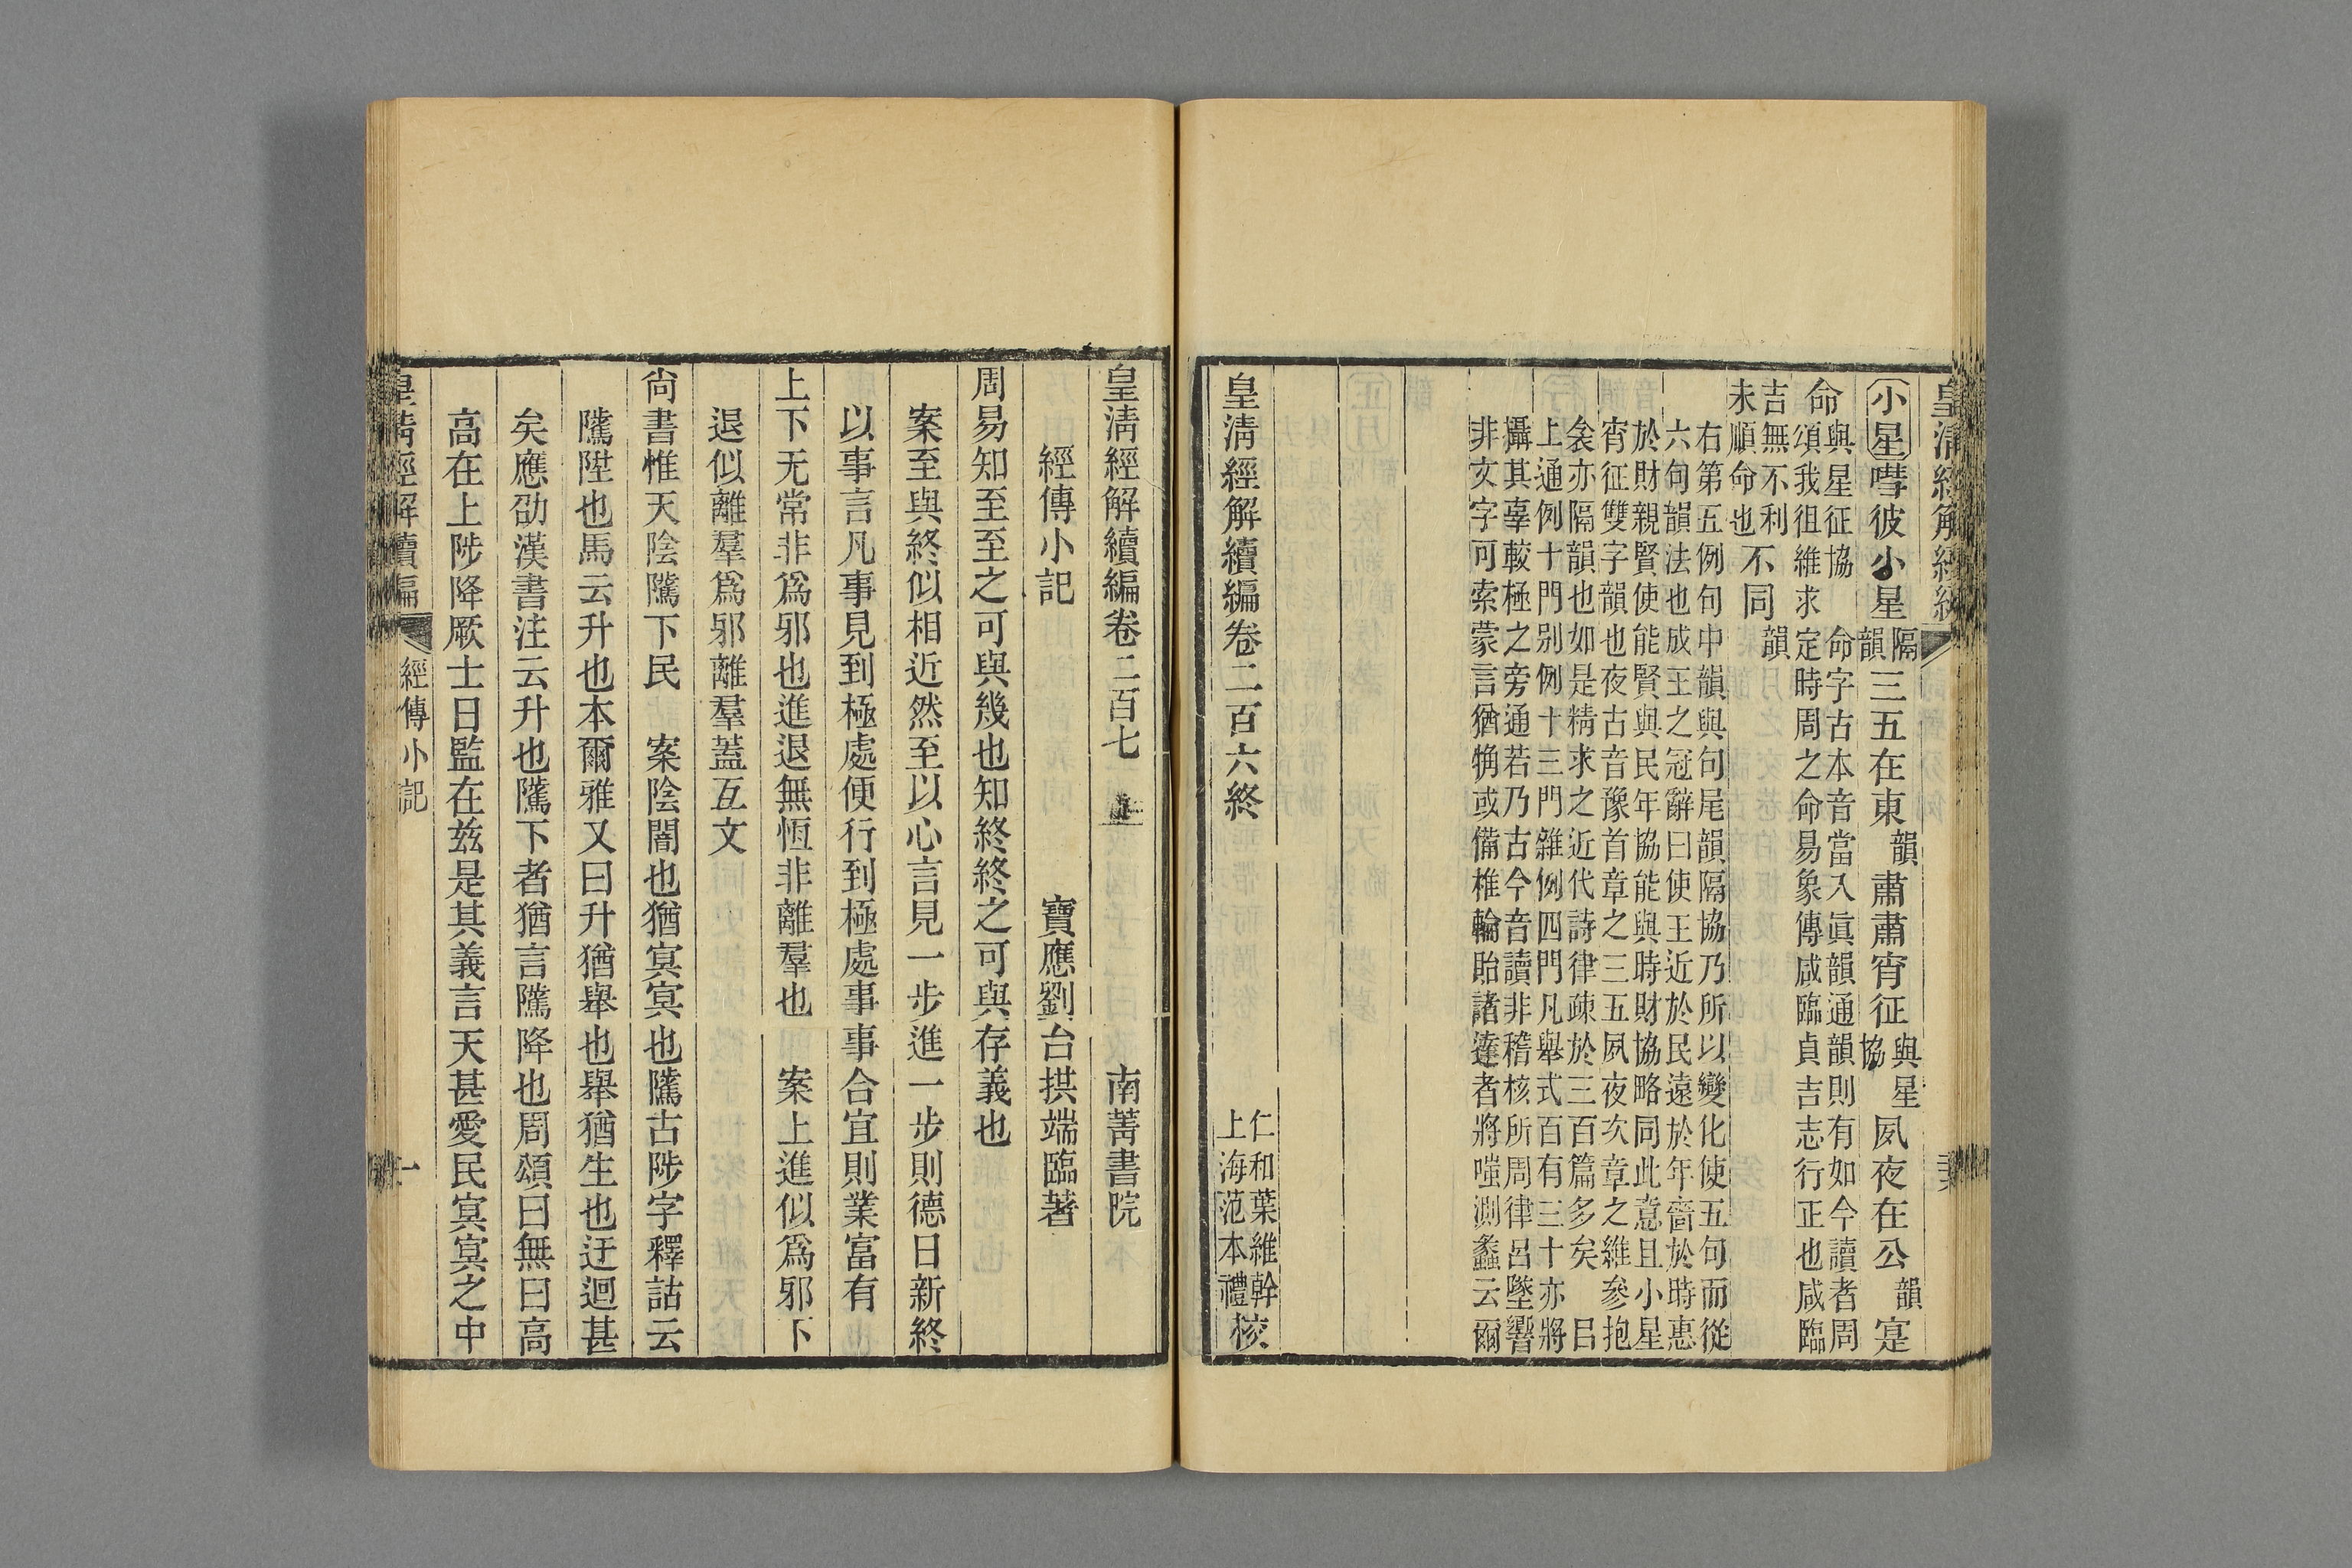 皇清經解續編
小星嘒彼小星隔韻三五在東韻肅肅宵征與星協夙夜在公韻寔
命與星征協 命字古本音當入眞韻通韻則有如今讀者周
頌我徂維求定時周之命易象傳咸臨貞吉志行正也咸臨
吉無不利
未順命也 不同韻
右第五例句中韻與句尾韻隔協乃所以變化使五句而從
六句韻法也成王之冠辭曰使王近於民遠於年嗇於時惠
於財親賢使能賢與民年協能與時財協略同此意且小星
宵征雙字韻也夜古音豫首章之三五夙夜次章之維參抱
衾亦隔韻也如是精求之近代詩律疎於三百篇多矣 㠯
上通例十門別例十三門雜例四門凡舉式百有三十亦將
攝其辜較極之旁通若乃古今音讀非稽核所周律呂墜響
非文字可索蒙言猶或備椎輪貽諸達者將嗤測蠡云爾
皇清經解續編卷二百六終 仁和葉維幹
上海范本禮 校
皇清經解續編卷二百七 南菁書院
經傳小記 寶應劉台拱端臨著
周易知至至之可與幾也知終終之可與存義也
案至與終似相近然至以心言見一步進一步則德日新終
以事言凡事見到極處便行到極處事事合宜則業富有
上下无常非爲邪也進退無恆非離羣也 案上進似爲邪下
退似離羣爲邪離羣蓋互文
尙書惟天陰隲下民 案陰闇也猶冥冥也隲古陟字釋詁云
隲陞也馬云升也本爾雅又曰升猶舉也舉猶生也迂迴甚
矣應劭漢書注云升也隲下者猶言隲降也周頌曰無曰高
高在上陟降厥士日監在茲是其義言天甚愛民冥冥之中
皇清經解續編 經傳小記 一